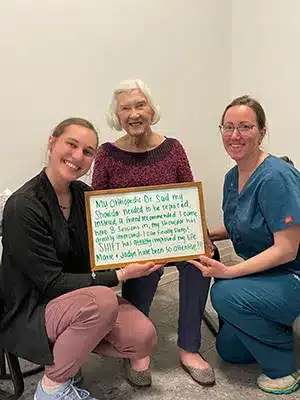 My Orthopedic Dr. Said my
Shoulder needed to be replaced,
instead a friend recommended I come
here. 8 Sessions in, my shoulder has
greatly improved - I can finally Sleep!
SHIFT has greatly improved my life.
Marie + Jadyn have been so attentive!!!